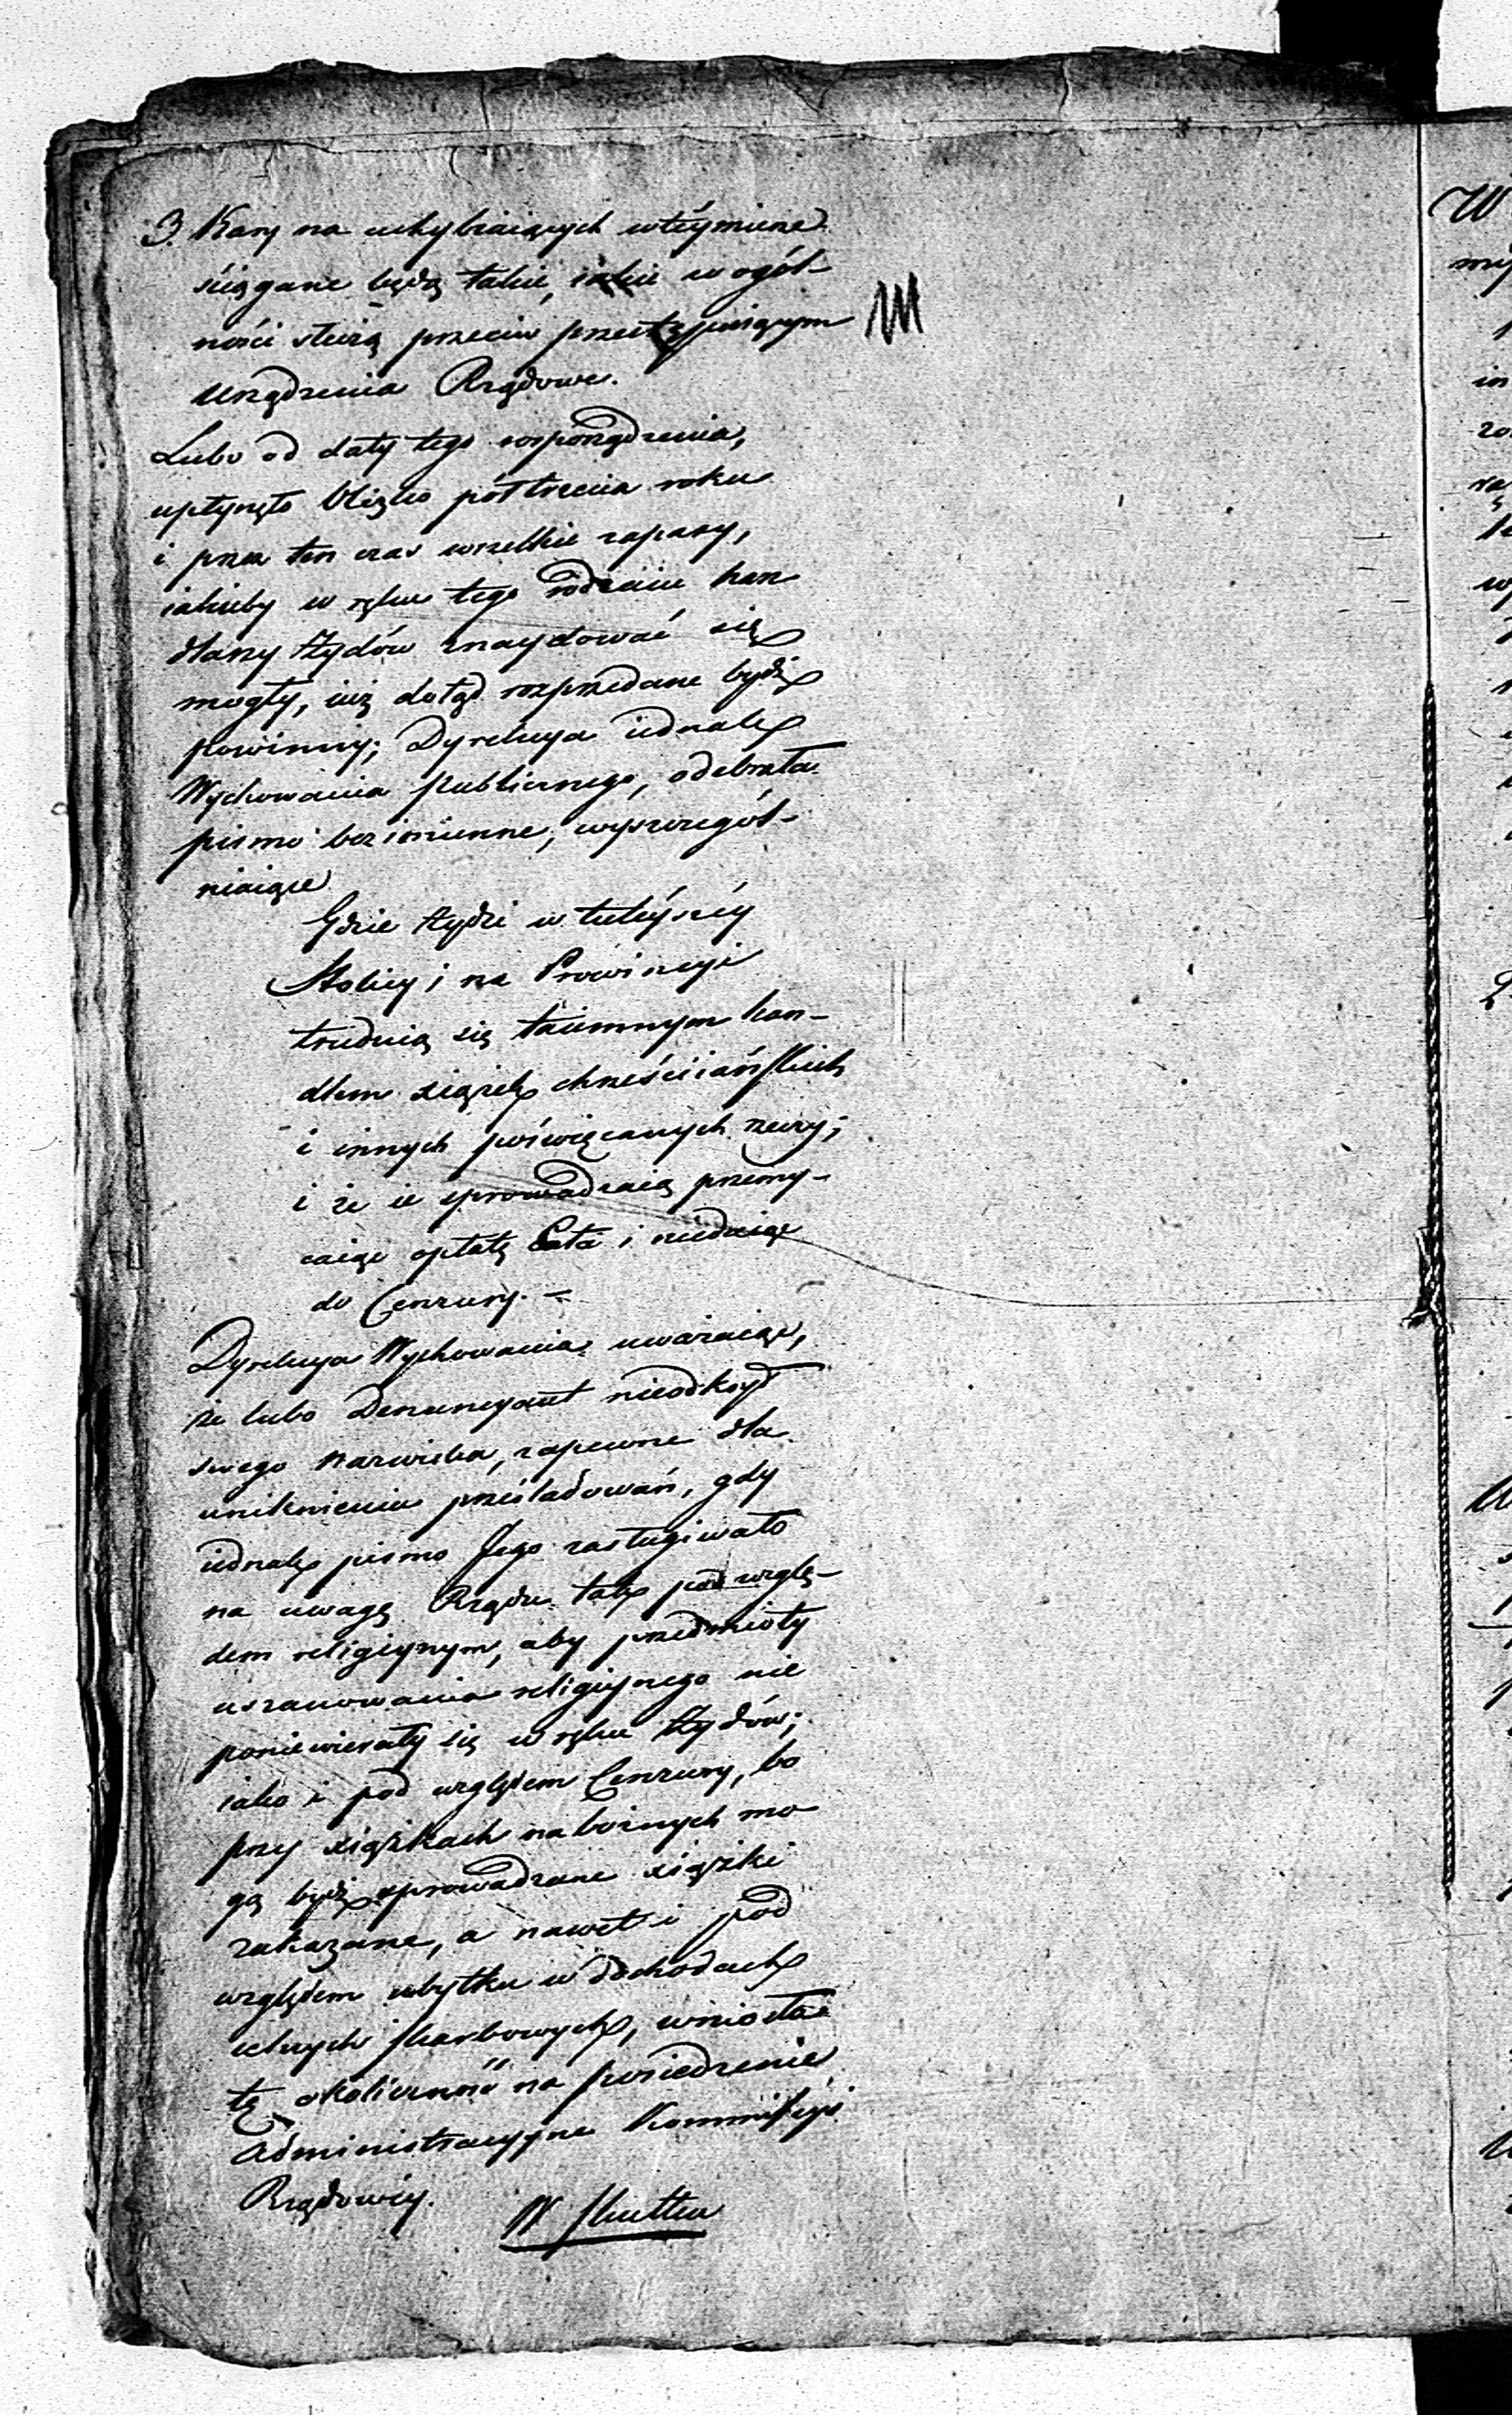 3. Kary na uchybiaiących wteymierze
ściągane będą takie, iakie w ogól-
ności służą przeciw przestępuiącym
urządzenia Rządowe.
Lubo od daty tego rozporządzenia,
upłynęło blizko półtrzecia roku
i przez ten czas wszelkie zapasy,
iakieby w ręku tego rodzaiu han
dlarzy Żydów znaydować się
mogły, iuż dotąd rozprzedane bydź
powinny; Dyrekcya iednak
Wychowania publicznego, odebrała
pismo bezimienne, wyszczegól-
niaiące
Gdzie Żydzi w tuteyszéy
Stolicy i na Prowincyi
trudnią się taiemnym han-
dlem xiążek chrześciiańskich
i innych poświęcanych rzeczy;
i że ie sprowadzaią przemy-
caiąc opłatę Cła i niedaiąc
do Cenzury. —
Dyrekcya Wychowania uważaiąc,
że lubo Denuncyant nieodkrył
swego nazwiska, zapewne dla
uniknienia prześladowań, gdy
iednak pismo Jego zasługiwało
na uwagę Rządu tak pod wzglę-
dem religiynym, aby przedmioty
uszanowania religiynego nie
poniewierały się w ręku Żydów;
iako i pod względem Cenzury, bo
przy xiążkach nabożnych mo
gą bydź sprowadzane xiążki
zakazane, a nawet i pod
względem ubytku w dochodach
celnych skarbowych, wniosła
tę okoliczność na posiedzenie
Administracyyne Kommissyi
Rządowéy.
W skutku